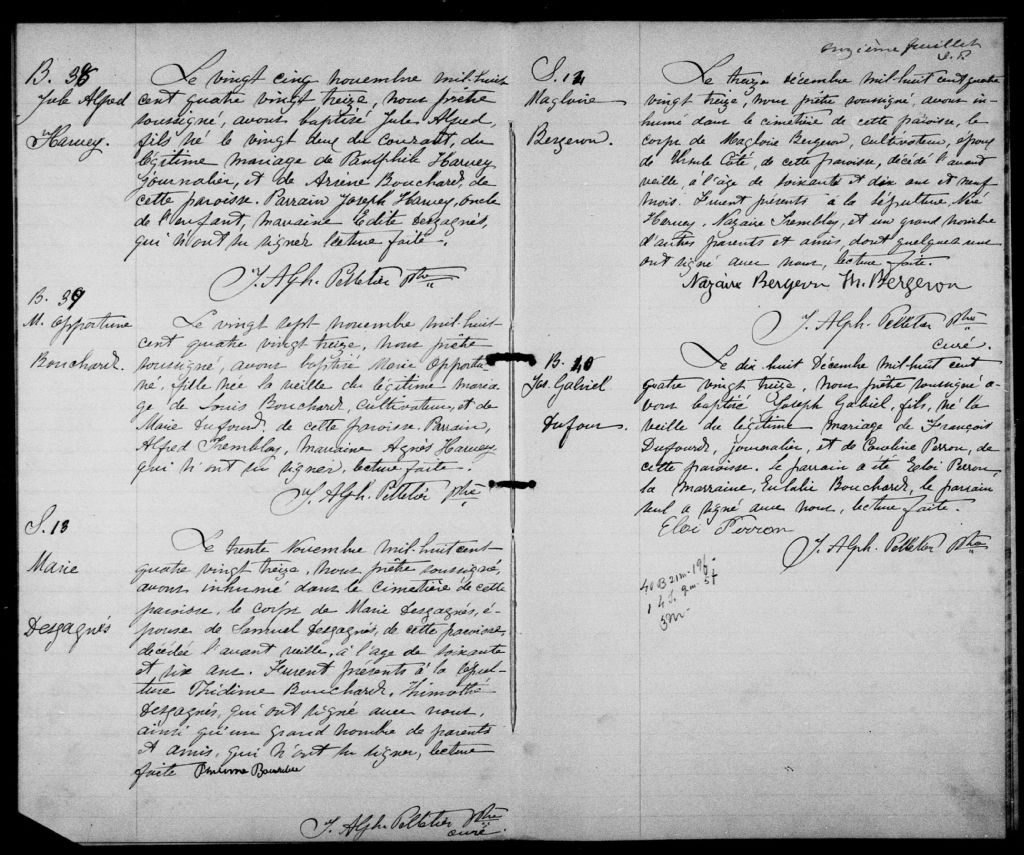 B. 38
Jule Alfred
Harvey.
Le vingt cinq novembre mil-huit
cent quatre vingt treize, nous prêtre
soussigné, avons baptisé Jule Alfred,
fils né le vingt deux du courant, du
légitime mariage de Pamphile Harvey
journalier, et de Arsène Bouchard, de
cette paroisse. Parrain Joseph Harvey, oncle
de l'enfant, marraine Edite Desgagnés,
qui n'ont su signer lecture faite.
J. Alph. Pelletier Ptre
B. 39
M. Opportune
Bouchard.
Le vingt sept novembre mil-huit-
cent quatre vingt treize, nous prêtre
soussigné, avons baptisé Marie Opportu-
né, fille née la veille du légitime maria-
ge de Louis Bouchard, cultivateur, et de
Marie Dufour, de cette paroisse. Parrain,
Alfred Tremblay, marraine Agnès Harvey.
qui n'ont su signer, lecture faite.
J. Alph. Pelletier Ptre
S. 13
Marie
Desgagnés
Le trente Novembre mil-huit cent-
quatre vingt treize, nous prêtre soussigné,
avons inhumé dans le cimetière de cette
paroisse, le corps de Marie Desgagnés, é-
pouse de Samuel Desgagnés, de cette paroisse,
décédée l'avant veille, à l'age de soixante
et six ans. Furent présents à la sépul-
ture Thidime Bouchard, Thimothé
Desgagnés, qui ont signé avec nous,
ainsi qu'un grand nombre de parents
et amis, qui n'ont su signer, lecture
faite
J. Alph. Pelletier Ptre
curé.
onzième feuillet
S. 14
Magloire
Bergeron.
Le treize décembre mil-huit cent quatre
vingt treize, nous prêtre soussigné, avons in-
humé dans le cimetière de cette paroisse, le
corps de Magloire Bergeron, cultivateur, époux
de Ursule Côté, de cette paroisse, décédé l'avant
veille, à l'âge de soixante et dix ans et neuf
mois. Furent présents à la sépulture,
Hervey, Nazaire Tremblay, et un grand nombre
d'autres parents et amis, dont quelques uns
ont signé avec nous, lecture faite.
Nazaire Bergeron M. Bergeron
J. Alph. Pelletier Ptre
curé.
B. 40
Jos. Gabriel
Dufour.
Le dix huit Décembre mil-huit cent
quatre vingt treize, nous prêtre soussigné a-
vons baptisé Joseph Gabriel, fils, né la
veille du légitime mariage de François
Dufourd, journalier, et de Caroline Perron, de
cette paroisse. Le parrain a été Eloi Perron,
la marraine, Eulalie Bouchard, le parrain
seul a signé avec nous, lecture faite.
Eloi Perron
J. Alph. Pelletier Ptre
40 B 21m-19f-
14 S. 9m-5f
5M